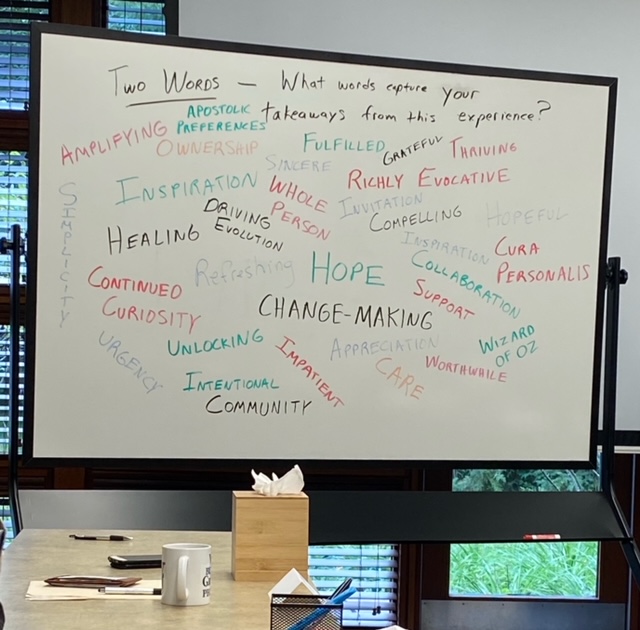 Two Words — What words capture your
takeaways from this experience?
APOSTOLIC
PREFERENCES
AMPLIFYING
OWNERSHIP
FULFILLED
GRATEFUL
THRIVING
SINCERE
INSPIRATION
WHOLE
PERSON
RICHLY EVOCATIVE
SIMPLICITY
DRIVING
EVOLUTION
INVITATION
COMPELLING
HOPEFUL
HEALING
INSPIRATION
CURA
PERSONALIS
Refreshing
HOPE
COLLABORATION
CONTINUED
CURIOSITY
SUPPORT
CHANGE-MAKING
URGENCY
UNLOCKING
IMPATIENT
APPRECIATION
WIZARD
OF OZ
WORTHWHILE
CARE
INTENTIONAL
COMMUNITY